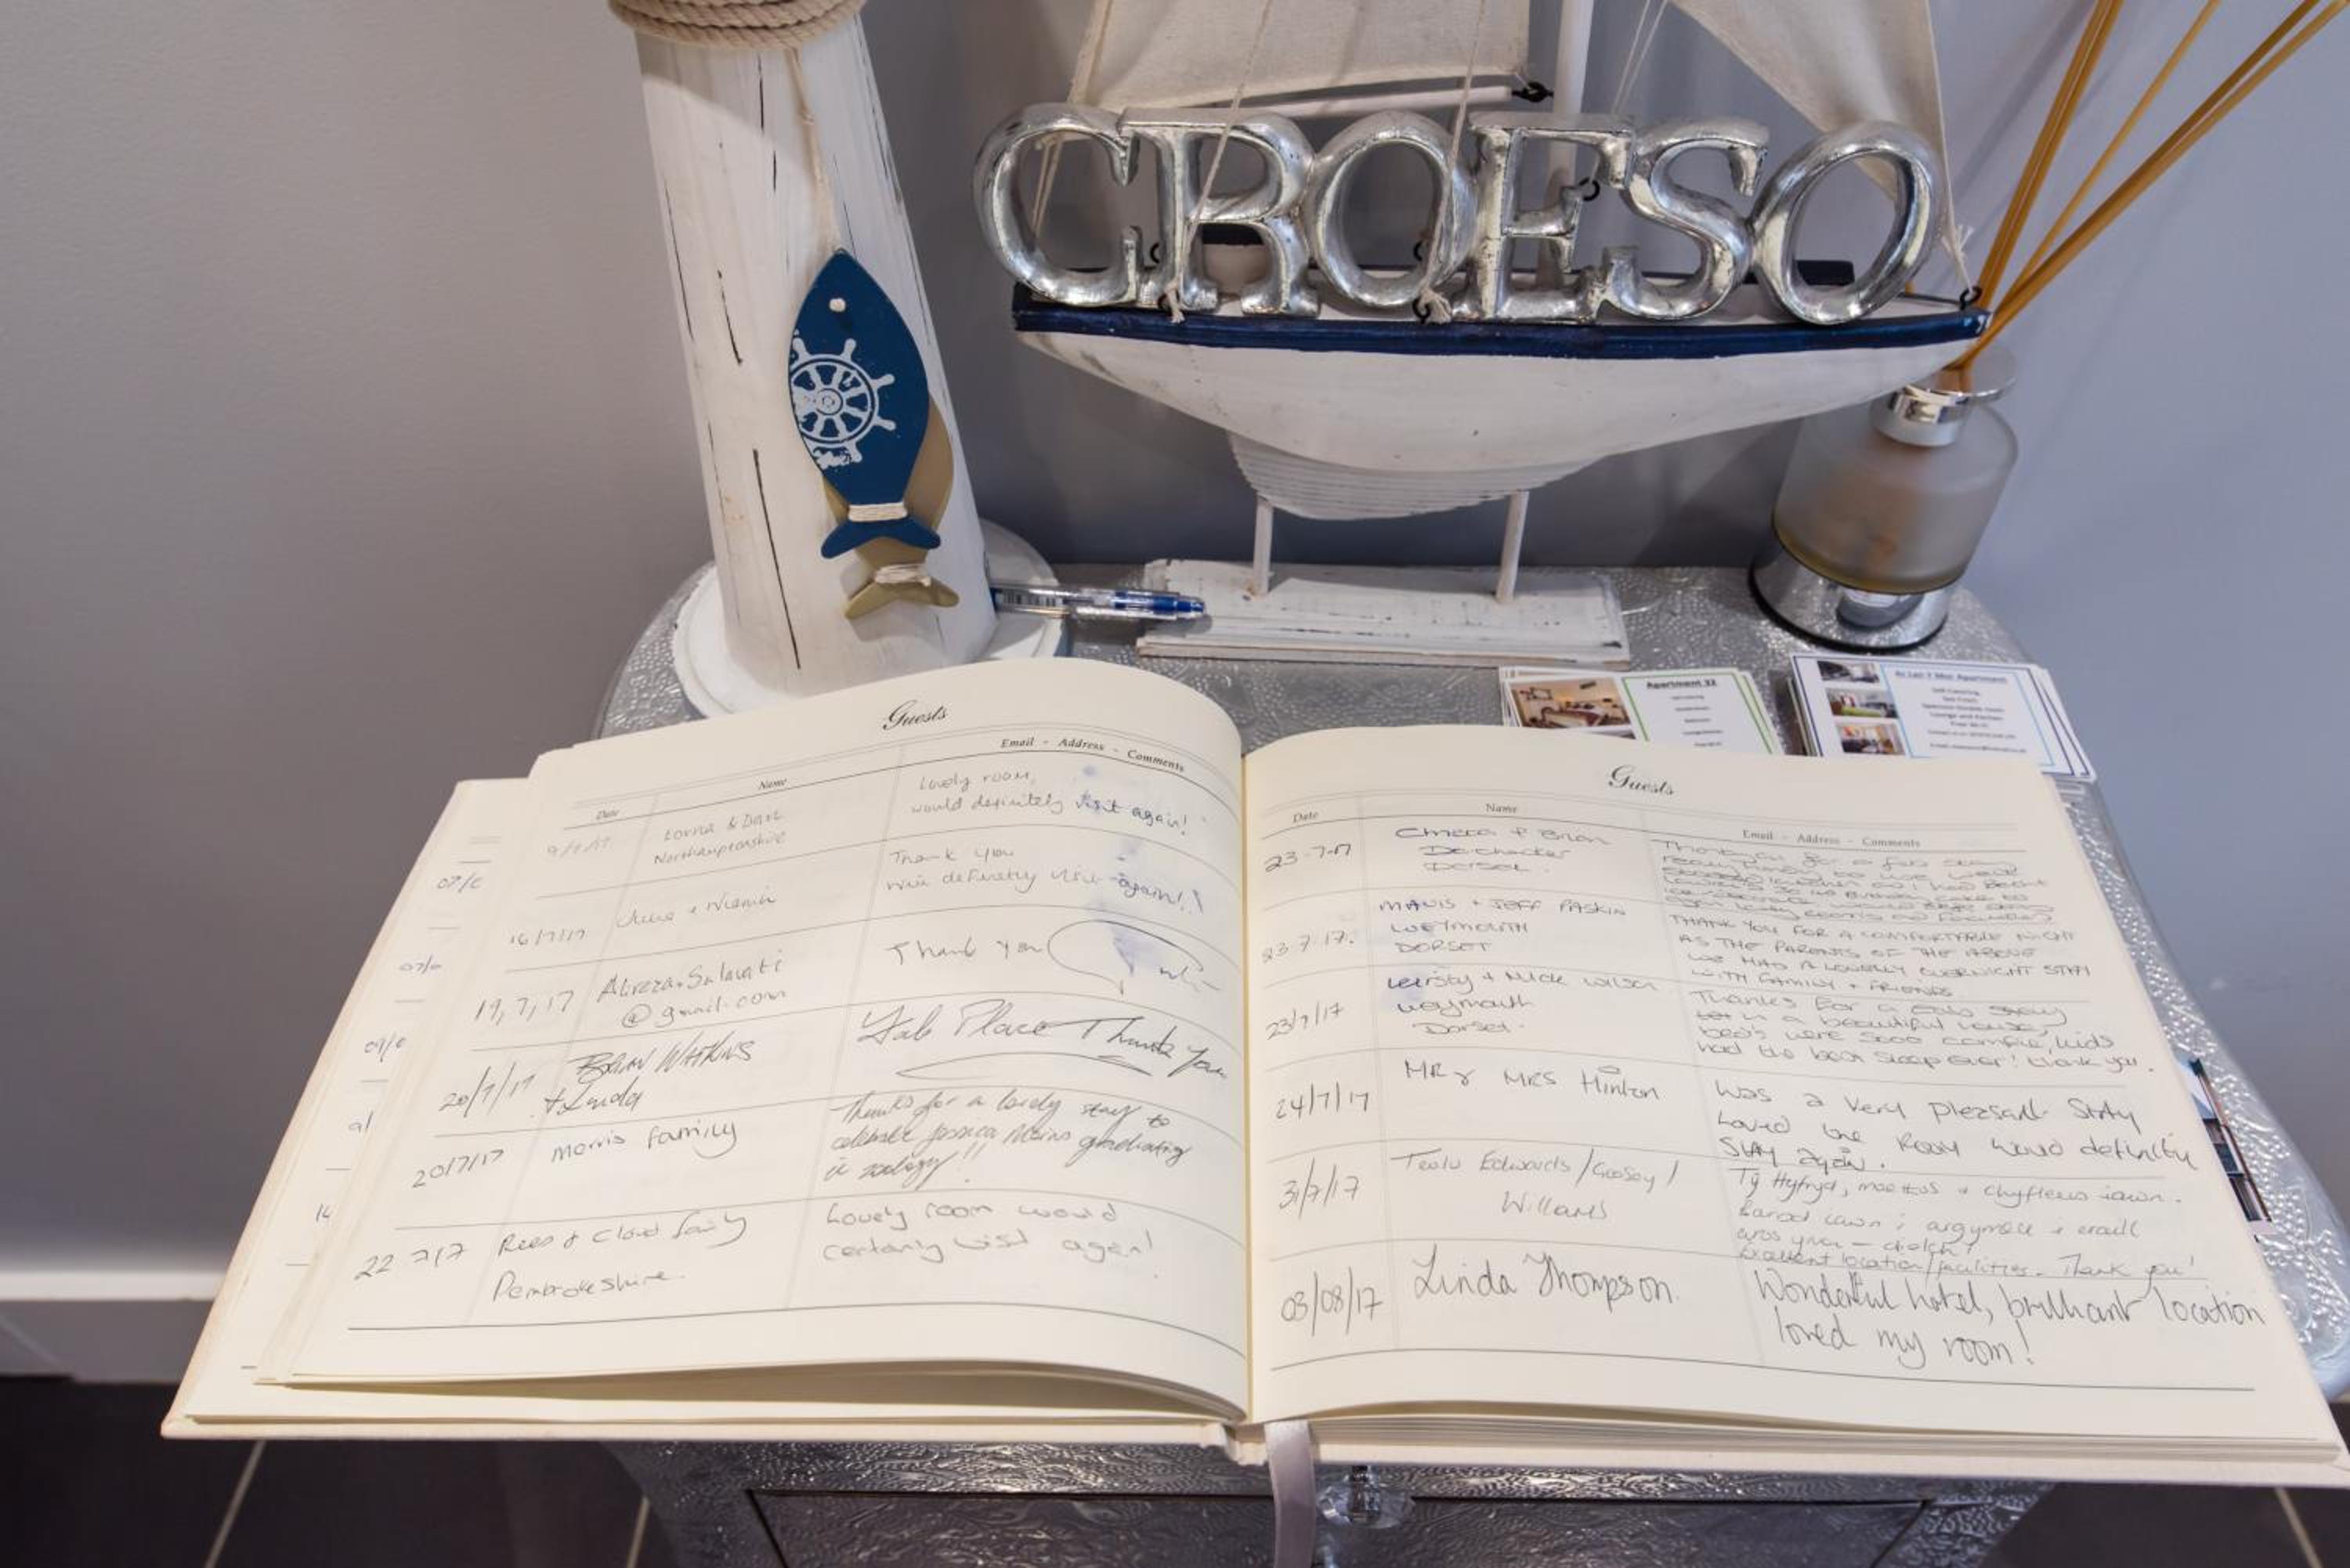 CROESO
Apartment 32
Ar Lan Y Mor Apartment
Guests
Date
Name
Email - Address - Comments
9/7/17
Lorna & Dave
Northamptonshire
Lovely room,
would definitely visit again!
16/7/17
June + Niamh
Thank you
will definetly visit again!!
19,7,17
Alireza.Salavati
@gmail.com
Thank you
20/7/17
BRIAN WATKINS
+ Linda
Fab Place Thank you
20/7/17
Morris family
Thanks for a lovely stay to
celebrate Jessica Morris graduating
in zoology!!
22 7/17
Rees & Cloud family
Pembrokeshire.
Lovely room would
certainly visit again!
Guests
Date
Name
Email - Address - Comments
23-7-17
+ Brian
Dorchester
Dorset.
23.7.17.
MAVIS + JEFF PASKIN
WEYMOUTH
DORSET
THANK YOU FOR A COMFORTABLE NIGHT
AS THE PARENTS OF THE ABOVE
WE HAD A LOVELY OVERNIGHT STAY
WITH FAMILY + FRIENDS
23/7/17
Kirsty + Nick Wilson
Weymouth
Dorset.
Thanks for a fab stay
in a beautiful house,
beds were sooo comfie, kids
had the best sleep ever! thank you.
24/7/17
MR & MRS Hinton
Was a very pleasant stay
Loved the Room would definitely
Stay again.
31/7/17
Teulu Edwards / /
Williams
Ty Hyfryd, moethus a chyfleus iawn.
Barod iawn i argymell i eraill
aros yma - diolch!
Excellent location/facilities. Thank you!
03/08/17
Linda Thompson.
Wonderful hotel, brilliant location
loved my room!